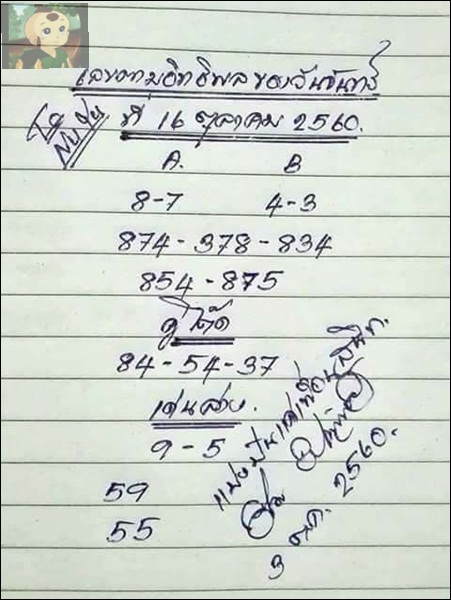 เลขตามอิทธิพลของวันจันทร์
ที่ 16 ตุลาคม 2560.
A. B
8-7 4-3
874-378-834
854-875
คู่โต๊ด
84-54-37
เด่นล่าง.
9-5
59
55
แบ่งปันแด่เพื่อนสนิท.
3 ต.ค. 2560.